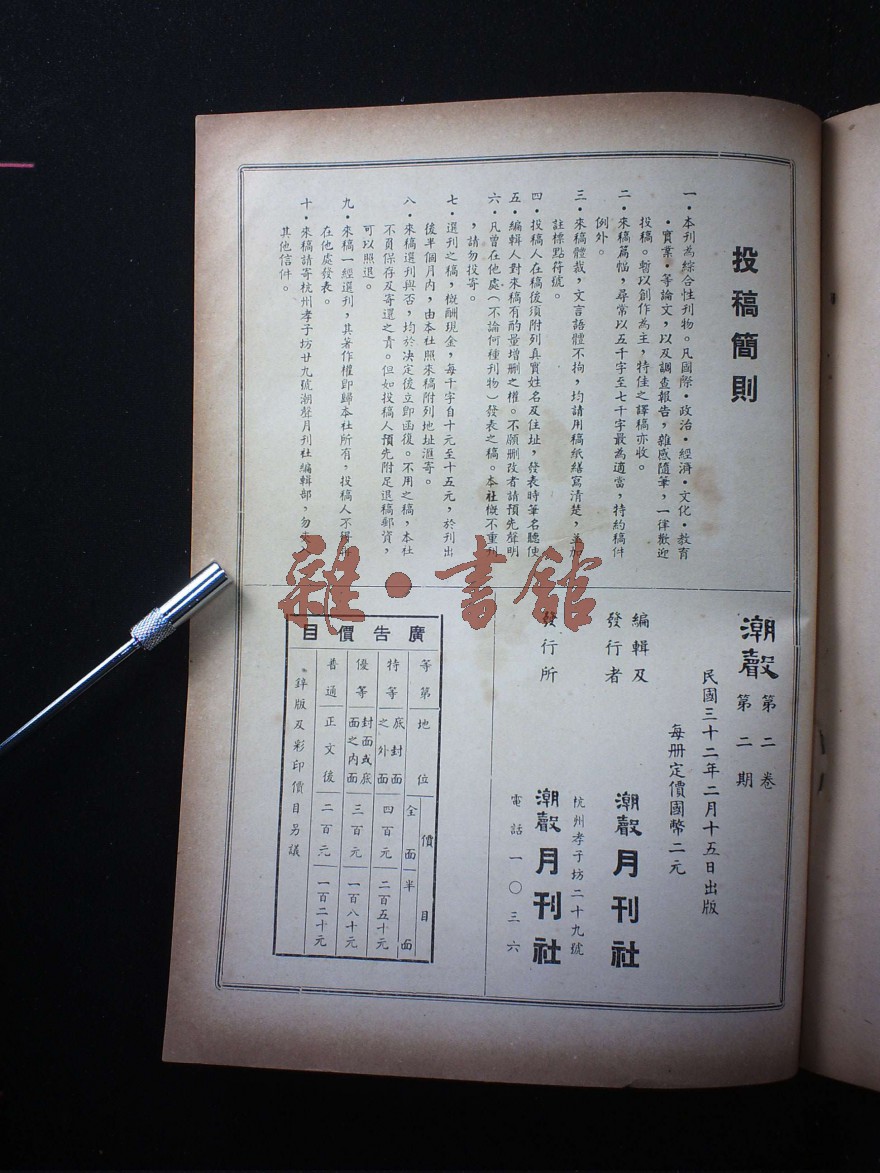 投稿簡則
一・本刊為綜合性刊物。凡國際・政治・經濟・文化・教育
・實業・等論文，以及調查報告，雜感隨筆，一律歡迎
投稿。暫以創作為主，特佳之譯稿亦收。
二・來稿篇幅，尋常以五千字至七千字最為適當，特約稿件
例外。
三・來稿體裁，文言語體不拘，均請用稿紙繕寫清楚，並加
註標點符號。
四・投稿人在稿後須附列真實姓名及住址，發表時筆名聽便
五・編輯人對來稿有酌量增刪之權。不願刪改者請預先聲明
六・凡曾在他處（不論何種刊物）發表之稿。本社概不重刊
，請勿投寄。
七・選刊之稿，概酬現金，每千字自十元至十五元，於刊出
後半個月內，由本社照來稿附列地址滙寄。
八・來稿選刊與否，均於決定後立即函復。不用之稿，本社
不負保存及寄還之責。但如投稿人預先附足退稿郵資，
可以照退。
九・來稿一經選刊，其著作權即歸本社所有，投稿人不得
在他處發表。
十・來稿請寄杭州孝子坊廿九號潮聲月刊社編輯部，勿
其他信件。
潮聲 第二卷 第二期
民國三十二年二月十五日出版
每册定價國幣二元
編輯及
發行者
潮聲月刊社
杭州孝子坊二十九號
發行所
潮聲月刊社
電話一〇三六
廣告價目
等第 地位 價目
全面 半面
特等 底封面之外面 四百元 二百五十元
優等 封面或底面之內面 三百元 一百八十元
普通 正文後 二百元 一百二十元
鋅版及彩印價目另議
雜・書館